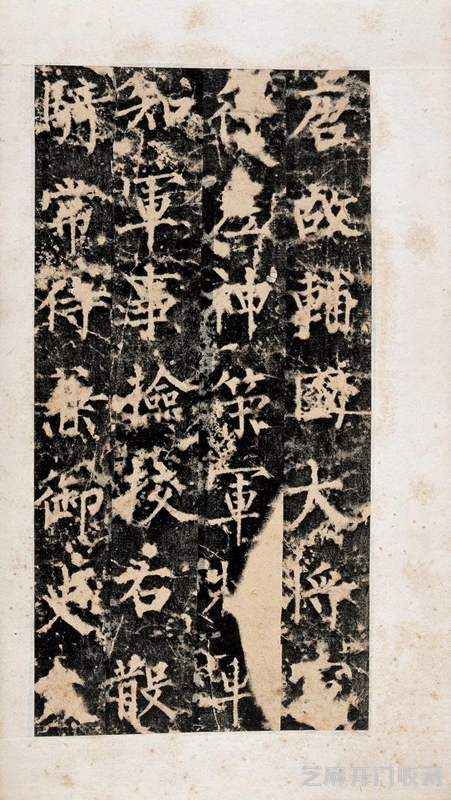 唐故輔國大將
行左神策軍軍
知軍事撿挍右散
騎常侍兼御史大
芝麻开门收藏